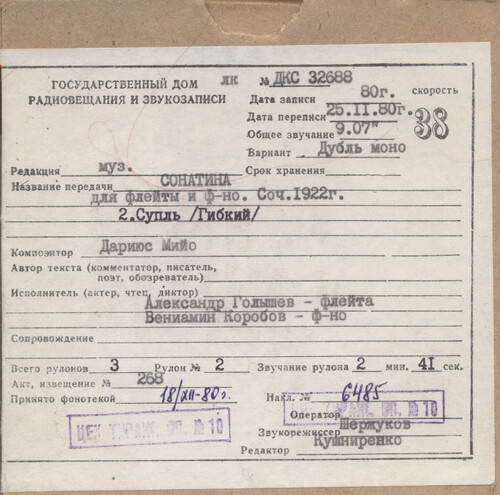 ГОСУДАРСТВЕННЫЙ ДОМ
РАДИОВЕЩАНИЯ И ЗВУКОЗАПИСИ
лк № ДКС 32688
Дата записи 80г. скорость
Дата переписи 25.II.80г. 38
Общее звучание 9.07"
Вариант Дубль моно
Редакция муз. Срок хранения
Название передачи СОНАТИНА
для флейты и ф-но. Соч.1922г.
2.Супль /Гибкий/
Композитор Дариюс Мийо
Автор текста (комментатор, писатель,
поэт, обозреватель)
Исполнитель (актер, чтец, диктор)
Александр Голышев - флейта
Вениамин Коробов - ф-но
Сопровождение
Всего рулонов 3 Рулон № 2 Звучание рулона 2 мин. 41 сек.
Акт, извещение № 268
Принято фонотекой 18/XII-80г. Накл. № 6485
Оператор
ЦЕХ ТИРАЖ. ФП. № 10
ТИРАЖ. ФП. № 10
Звукорежиссер Шержуков
Редактор Кушниренко